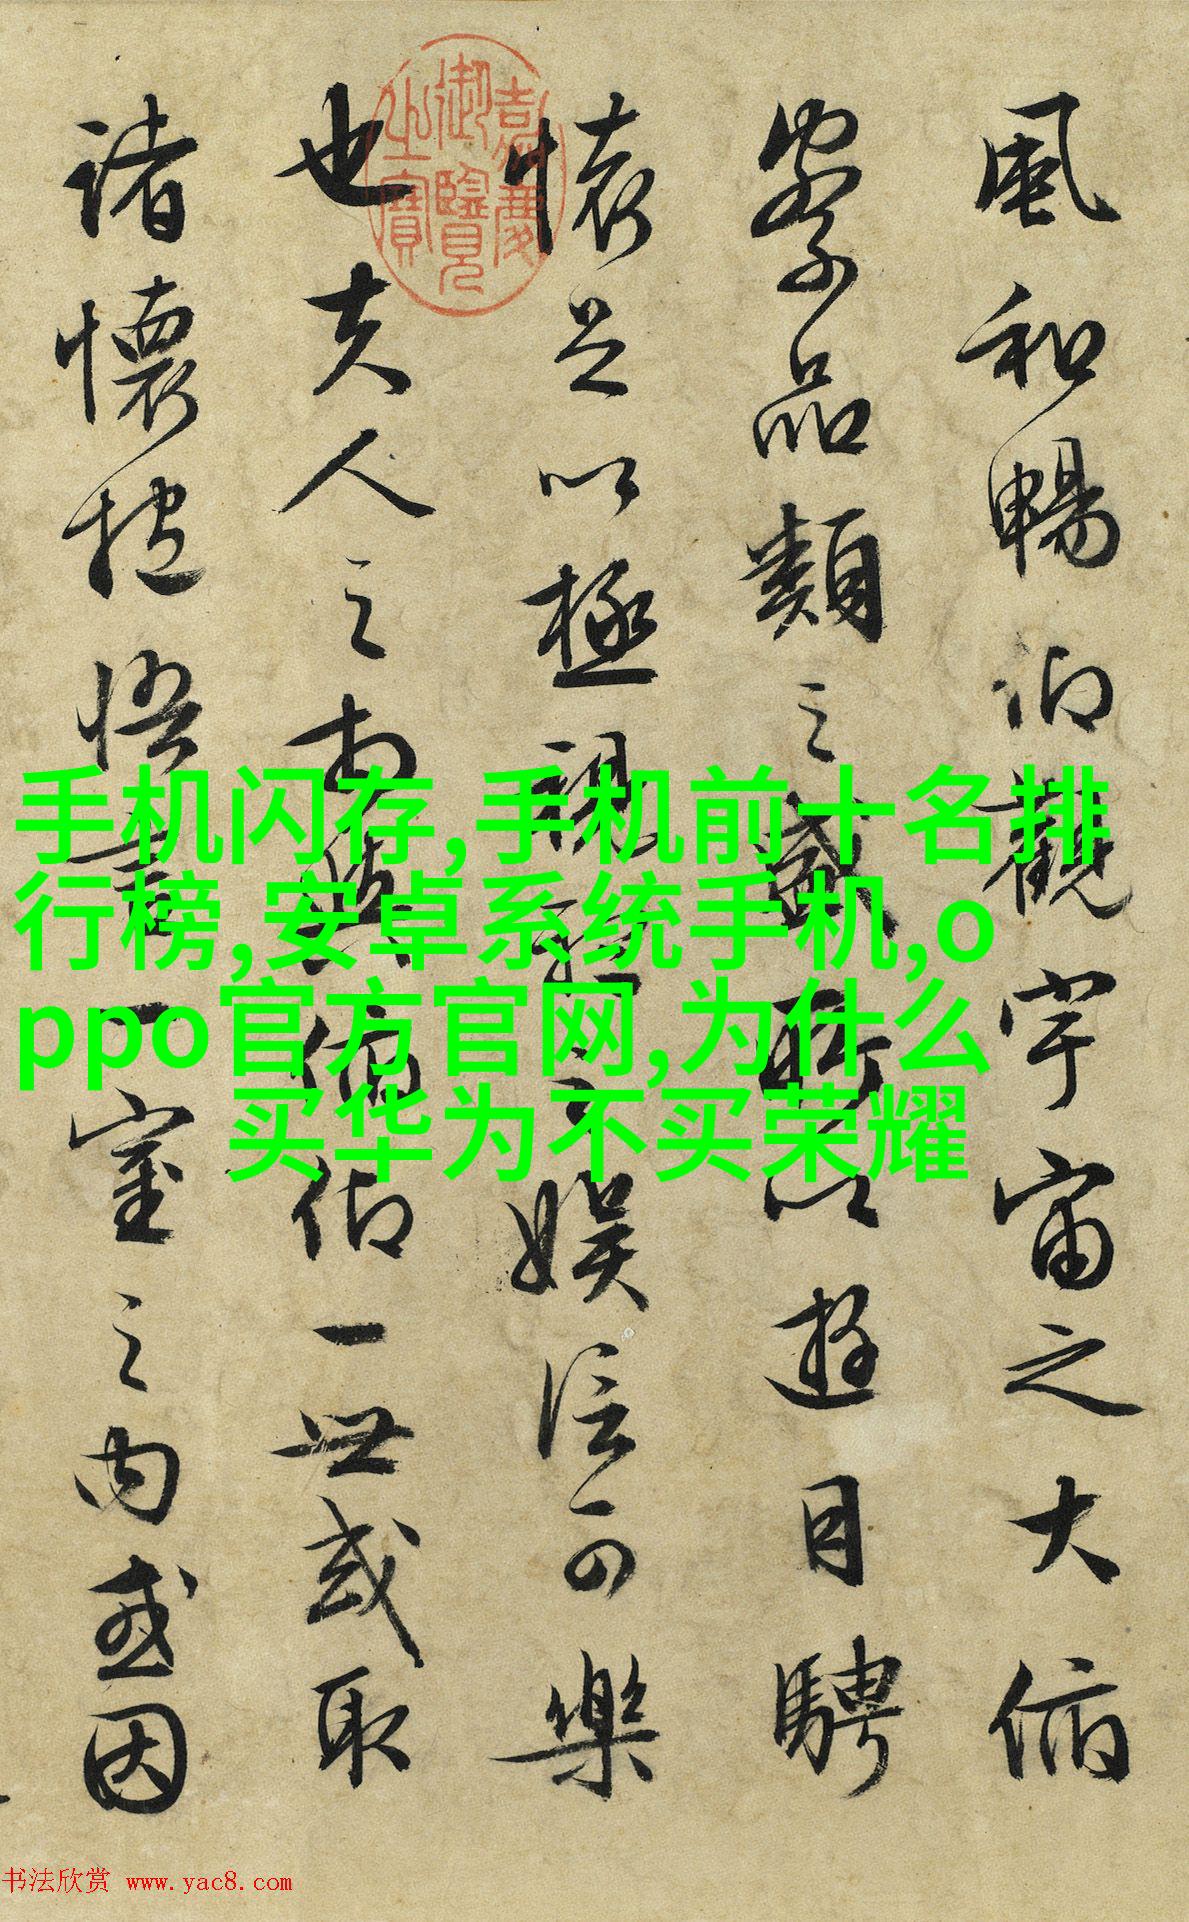 風和暢仰觀宇宙之大俯
察品類之盛所以遊目騁
懷足以極視聽之娛信可樂
也夫人之相與俯仰一世或取
諸懷抱悟言一室之內或因
嘉慶
御覽
之寶
手机闪存,手机前十名排
行榜,安卓系统手机,o
ppo官方官网,为什么
买华为不买荣耀
书法欣赏 www.yac8.com